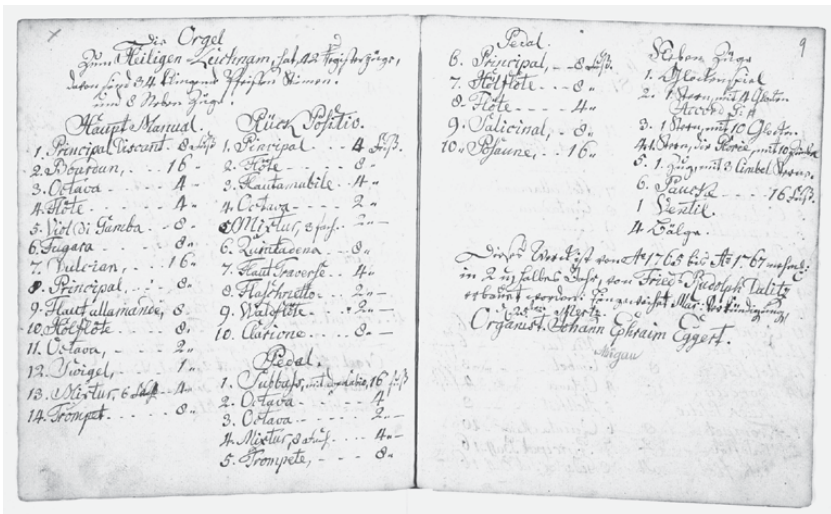 Die Orgel
Zum Heiligen-Leichnam, hat 42 Registerzüge,
davon sind 34 klingende Stimen.
und 8 Neben Züge.
Haupt Manual.
1. Principal Discant - 8 Fuß
2. Bourdun, - - - 16 "
3. Octava - - - - 4 "
4. Flöte - - - - 4 "
5. Viol di Gamba - - 8 "
6. Fugara - - - - 8 "
7. Dulcian, - - - 16 "
8. Principal, - - - 8 "
9. Flaut allamande, 8 "
10. Holflöte - - - 8 "
11. Octava, - - - 2 "
12. - - - - 1 "
13. Mixtur, 6 fach - - 4 "
14. Trompet - - - - 8 "
Rück Positiv.
1. Principal - - - 4 Fuß.
2. Flöte - - - - 8 "
3. Flautamabile - 4 "
4. Octava - - - - 2 "
5. Mixtur, 3 fach. - - 2 "
6. Quintadena - - 8 "
7. Flaut Traverse - - 4 "
8. Flaschnetto - - 2 "
9. Waldflöte - - 2 "
10. Clarione - - - 8 "
Pedal.
1. Subbass, 16 Fuß
2. Octava - - - - 4 "
3. Octava - - - - 2 "
4. Mixtur, fach. - - - 4 "
5. Trompete, - - - 8 "
9
Pedal.
6. Principal, - - 8 Fuß.
7. Holflöte - - - 8 "
8. Flöte - - - - 4 "
9. Salicinal, - - 8 "
10. Posaune, - - 16 "
Neben Züge
1. Glockenspiel
2. 1 Stern, mit 4 Glocken
Accord
3. 1 Stern, mit 10 Glocken.
4. 1 Stern, die mit 10
5. 1 Zug, mit 3 Cimbel Stern.
6. Pauck - - - - 16 Fuß.
1 Ventil.
4 Bälge.
Dieses Werk ist von Ao 1765 bis Ao 1767
in 2 halbes Jahr, von Fried: Rudolph Dalitz
erbauet worden: eingeweihet Mar: Verkündigung
Mertz.
Organist Johann Ephraim Eggert.